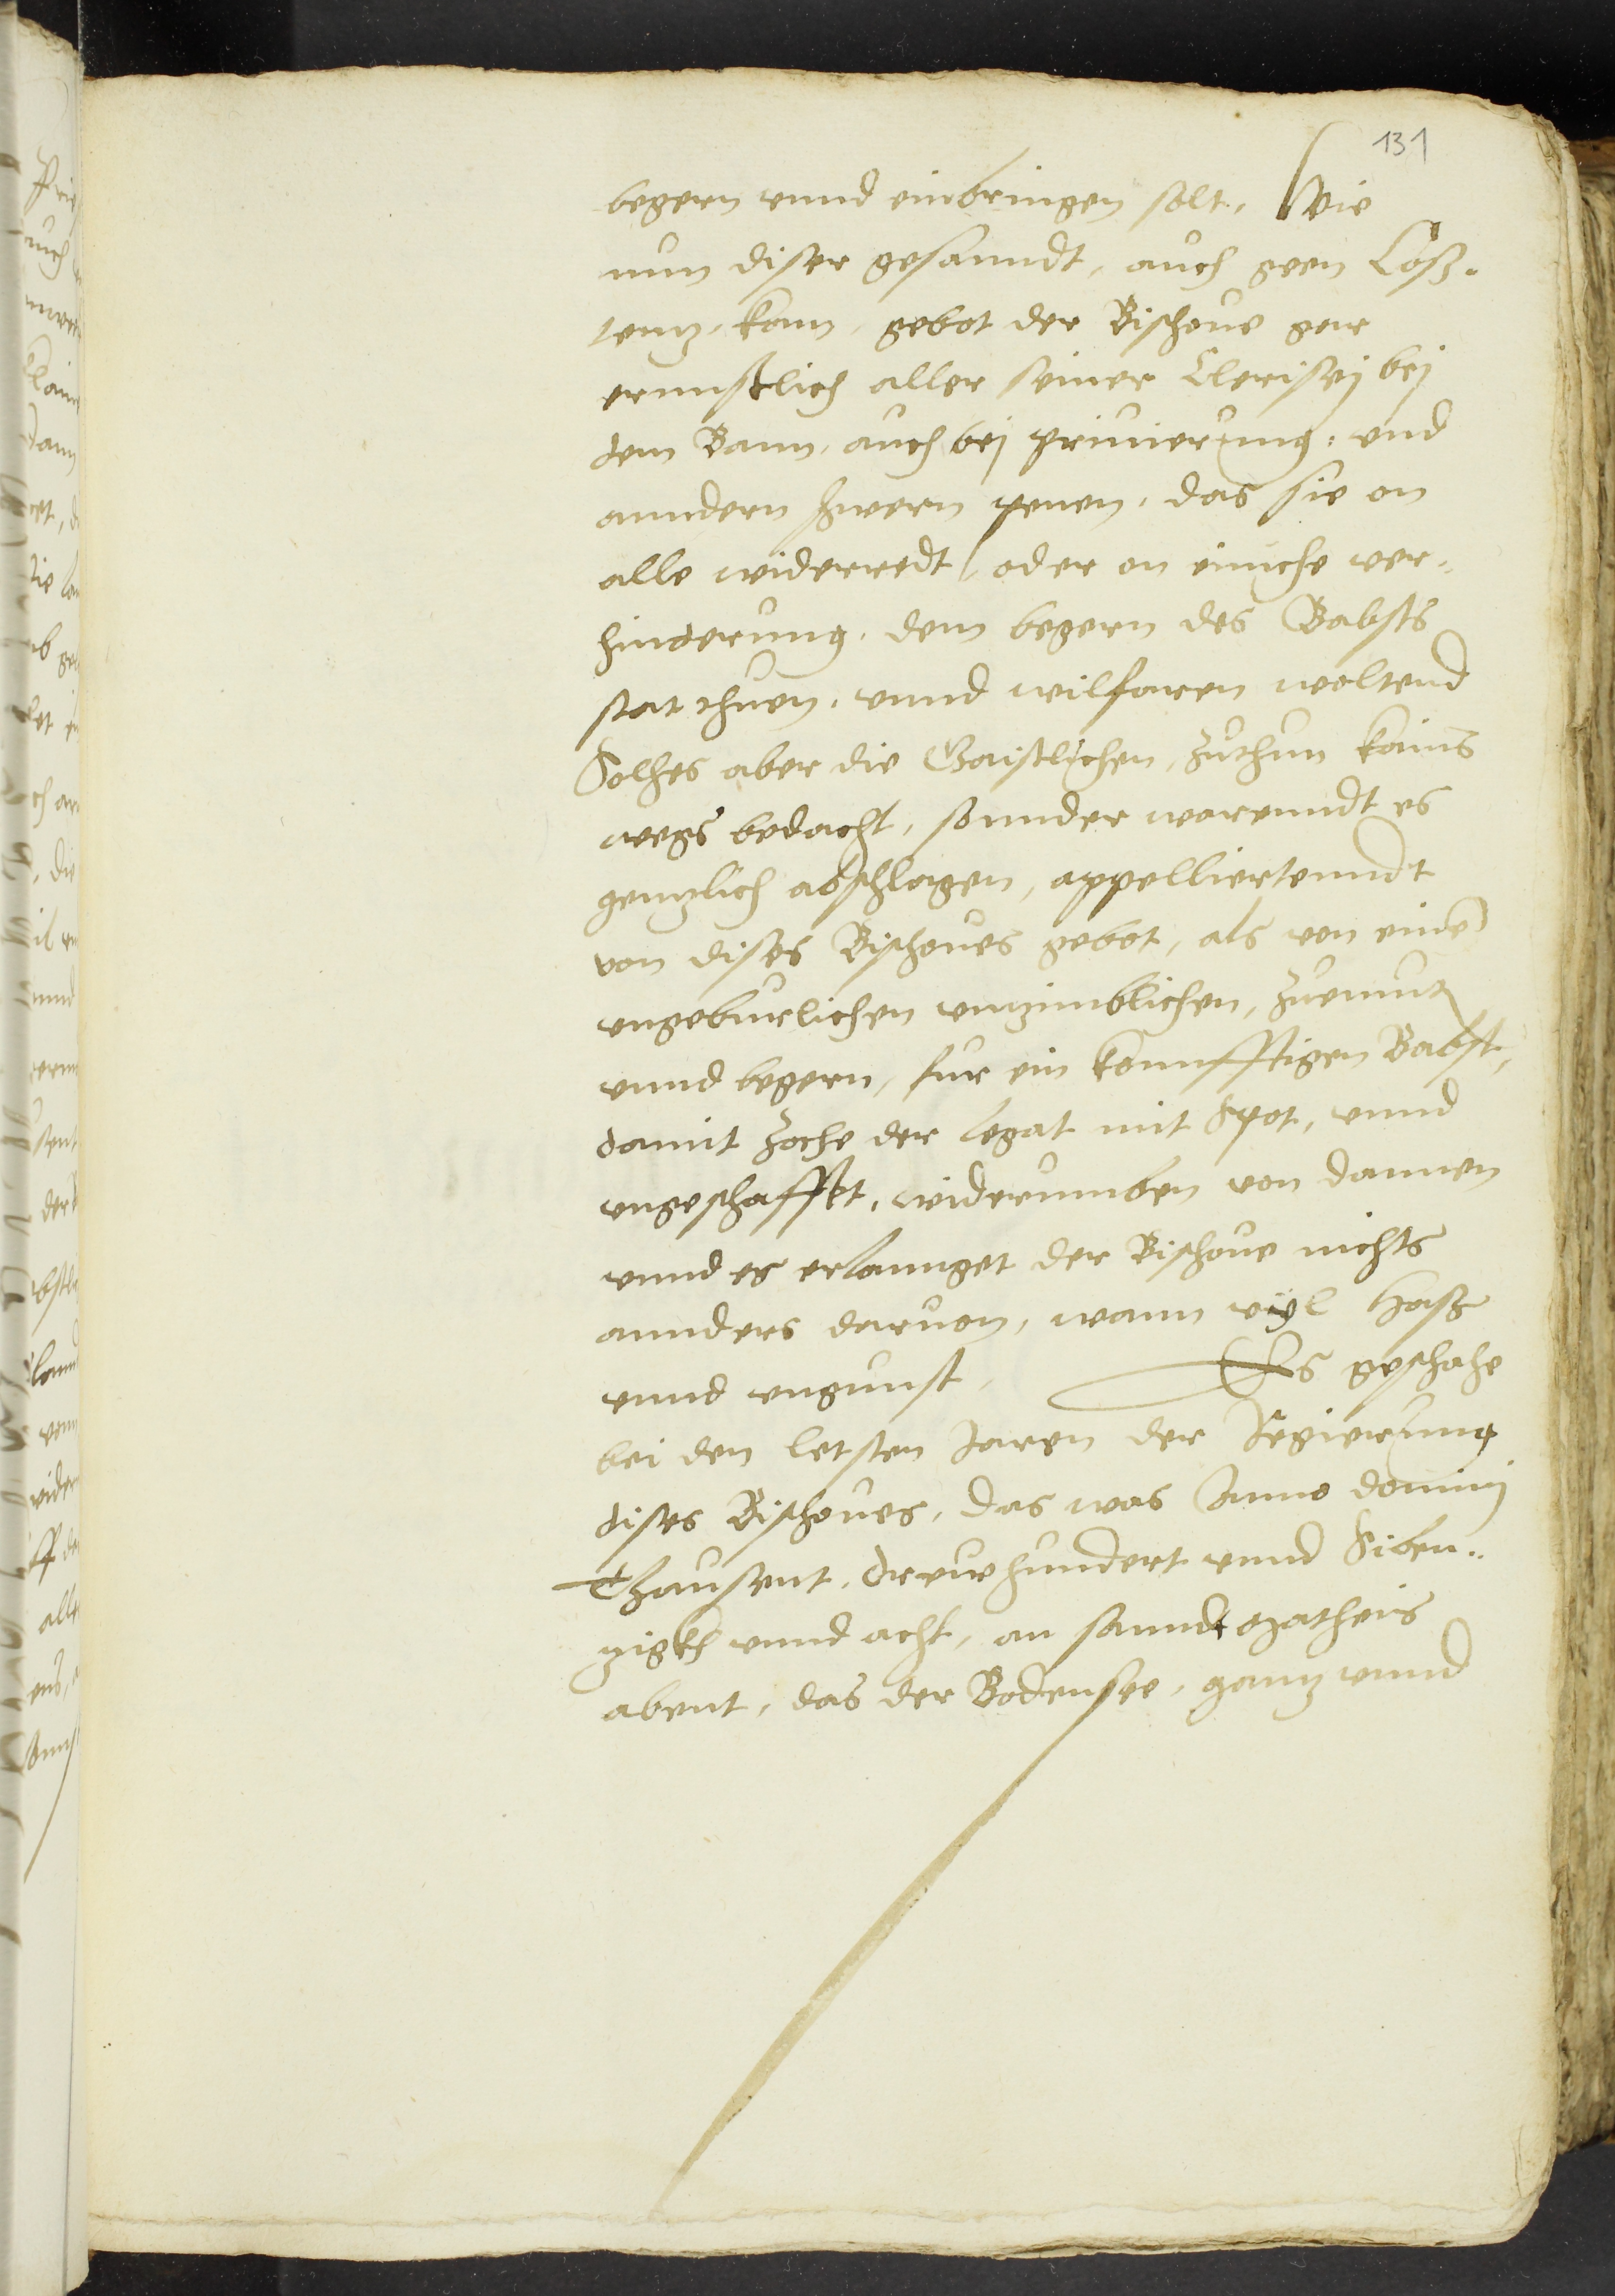 131
begern vnnd einbringen solt, Wie
nun diser gesanndt, auch geen Cosz-
tentz, kam, gebot der Bischoue gar
ernnstlich aller seiner Clerisej bej
dem Bann, auch bej priuierung, vnd
anndern schwern penen, das sie on
alle widerredt, oder on einiche ver-
hinderung, dem begern des Babsts
stat thuen, vnnd wilfaren woltend
Solhes aber die Gaistlichen, zuthun kains
wegs bedacht, sonnder warenndt es
gentzlich abschlagen, appelliertenndt
von dises Bischoues gebot, als von eine
vngeburlichen vnzimblichen, zuemut
vnnd begern, fur ein konnfftigen Babst,
damit zoche der Legat mit Spot, vnnd
vngeschafft, widerumben von dannen
vnnd es erlannget der Bischoue nichts
annders daruon, wann vyl Hasz
vnnd vngunst, Es geschahe
bei den letsten Jaren der Regierung
dises Bischoues, das was Anno dominj
Thausent, dreuwhundert vnnd Siben-
zigkh vnnd acht, an sannt Matheis
abent, das der Bodensee, gantz vnnd